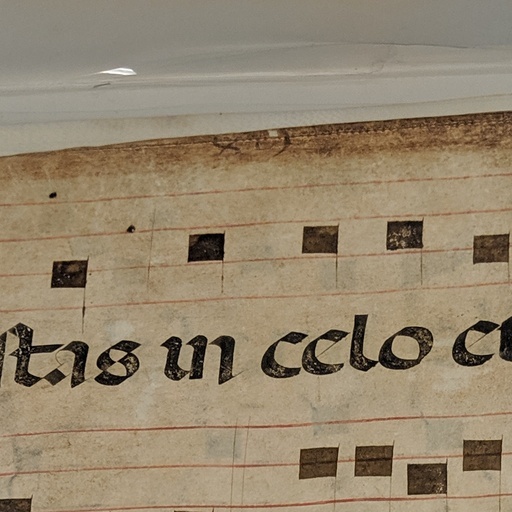 stis in celo et